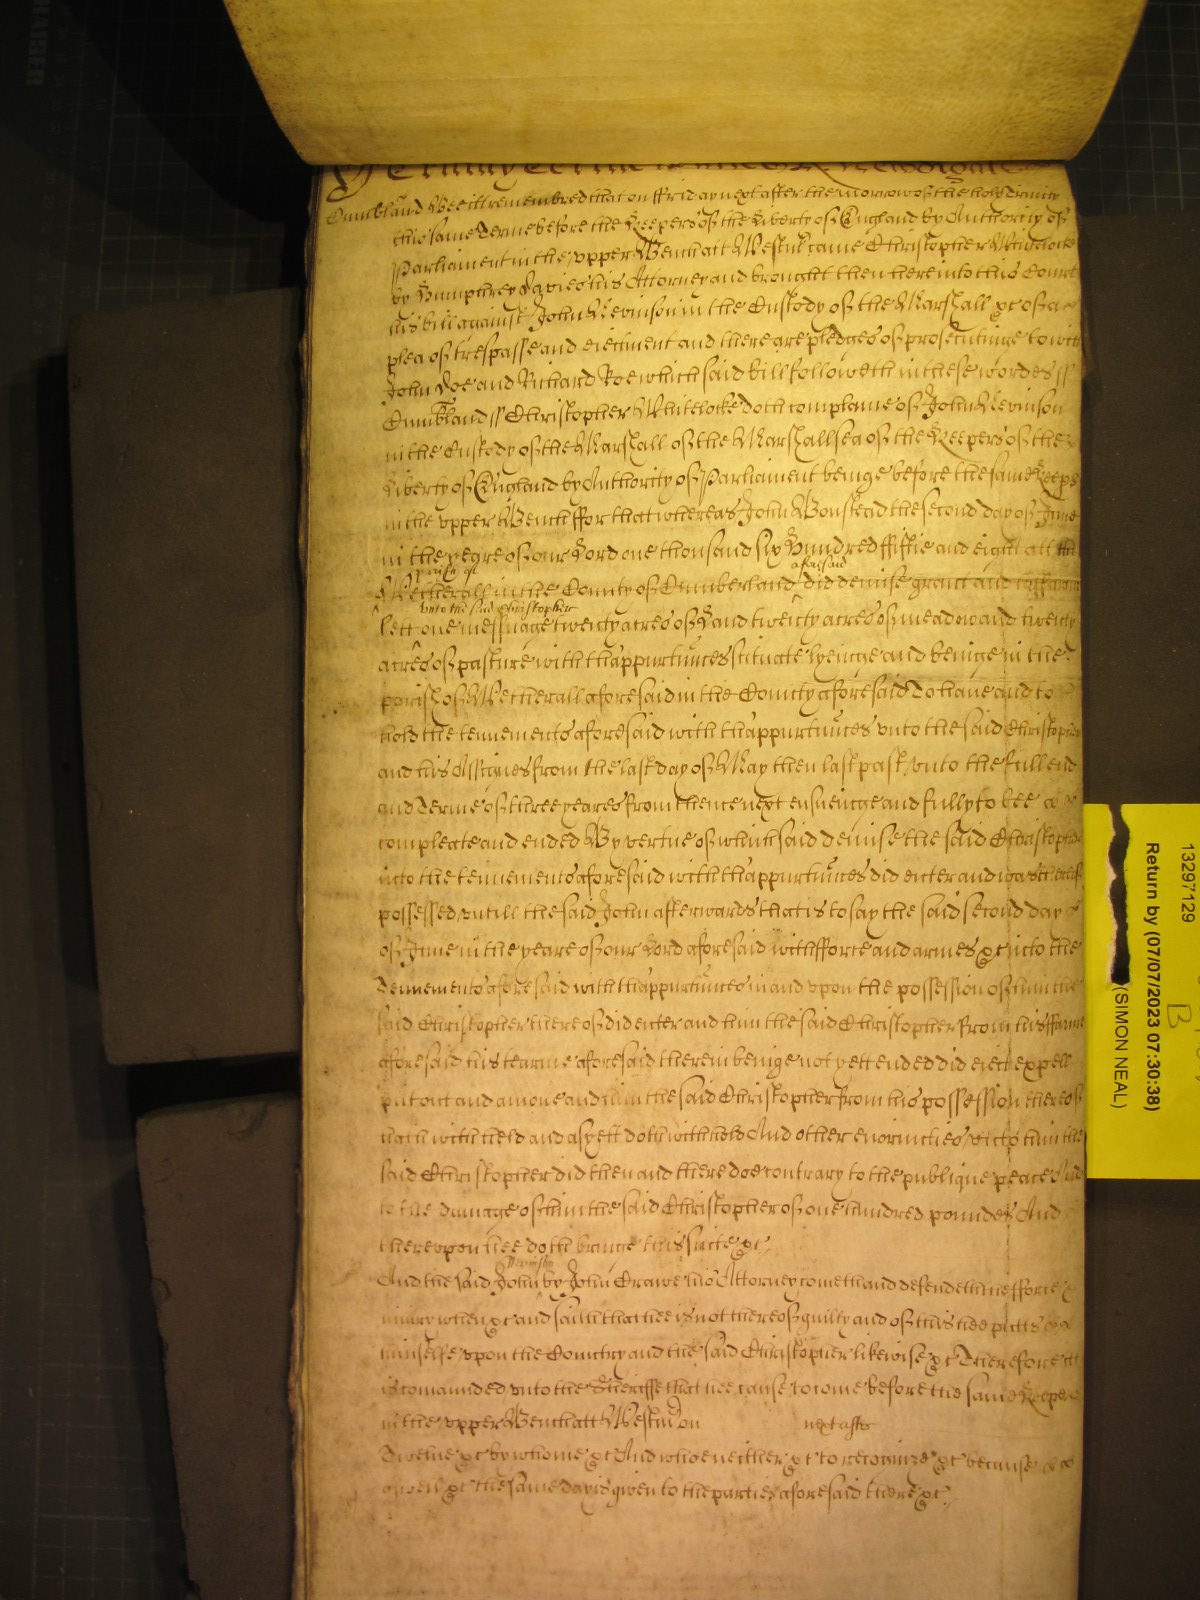 Cumbland Bee it remembred that on ffriday next after the morrow of the holy Trinity
this same Terme before the Keepers of the Liberty of England by Authority of
Parliament in the upper Bench att Westmr came Christopher Whitelocke
by Humphrey Davies his Attorney and brought then here into this Court
his bill against John Nevinson in the Custody of the Marshall &c of a
plea of trespasse and eiectment and there are pledges of prosecutinge to witt
John Doe and Richard Roe which said bill followeth in these wordes ss
Cumbland ss Christopher Whitelocke doth complaine of John Nevinson
in the Custody of the Marshall of the Marshallsea of the Keepers of the
Liberty of England by Authority of Parliament beinge before the same Keeps
in the upper Bench ffor that whereas John Bonstead the second day of June
in the yeare of our Lord one thousand six Hundred ffiftie and eight att the
parish of aforesaid
Wetherall in the County of Cumberland did demise grant and
unto the said Christopher
lett one messuage twenty acres of Land twenty acres of meadow and twenty
acres of pasture with thappurtunces scituate lyeinge and beinge in the
parish of Wetherall aforesaid in the County aforesaid To have and to
hold the tennements aforesaid with thappurtunces unto the said Christopher
and his Assignes from the last day of May then last past unto the full end
and Terme of three yeares from thence next ensueinge and fully to bee
compleate and ended By vertue of which said demise the said Christopher
into the tennements aforesaid with thappurtunces did enter and was thereof
possessed untill the said John afterwards that is to say the said second day
of June in the yeare of our Lord aforesaid with fforce and armes &c into the
Tennements aforesaid with thappurtunces in and upon the possession of him the
said Christopher thereof did enter and him the said Christopher from his ffarme
aforesaid his tearme aforesaid therein beinge not yett ended did eiect expell
put out and amove and him the said Christopher from his possession thereof
hath with held and as yett doth withhold And other enormities to him the
said Christopher did then and there doe contrary to the publique peace And
to the damage of him the said Christopher of one hundred pounds And
thereupon hee doth bringe this suite &c
Nevinson
And the said John by John Crawe his Attorney cometh and defendeth the fforce &
iniury when &c and saith that hee is not thereof guilty and of this hee putts
himselfe upon the Country and the said Christopher likewise &c Therefore itt
is comaunded unto the Sheriffe that hee cause to come before the same Keeps
in the upper Bench att Westmr on next after
Twelve &c by whome &c And who neither &c to recognize &c because
&c the same day is given to the parties aforesaid there &c
13297129
Return by (07/07/2023 07:30:38)
(SIMON NEAL)